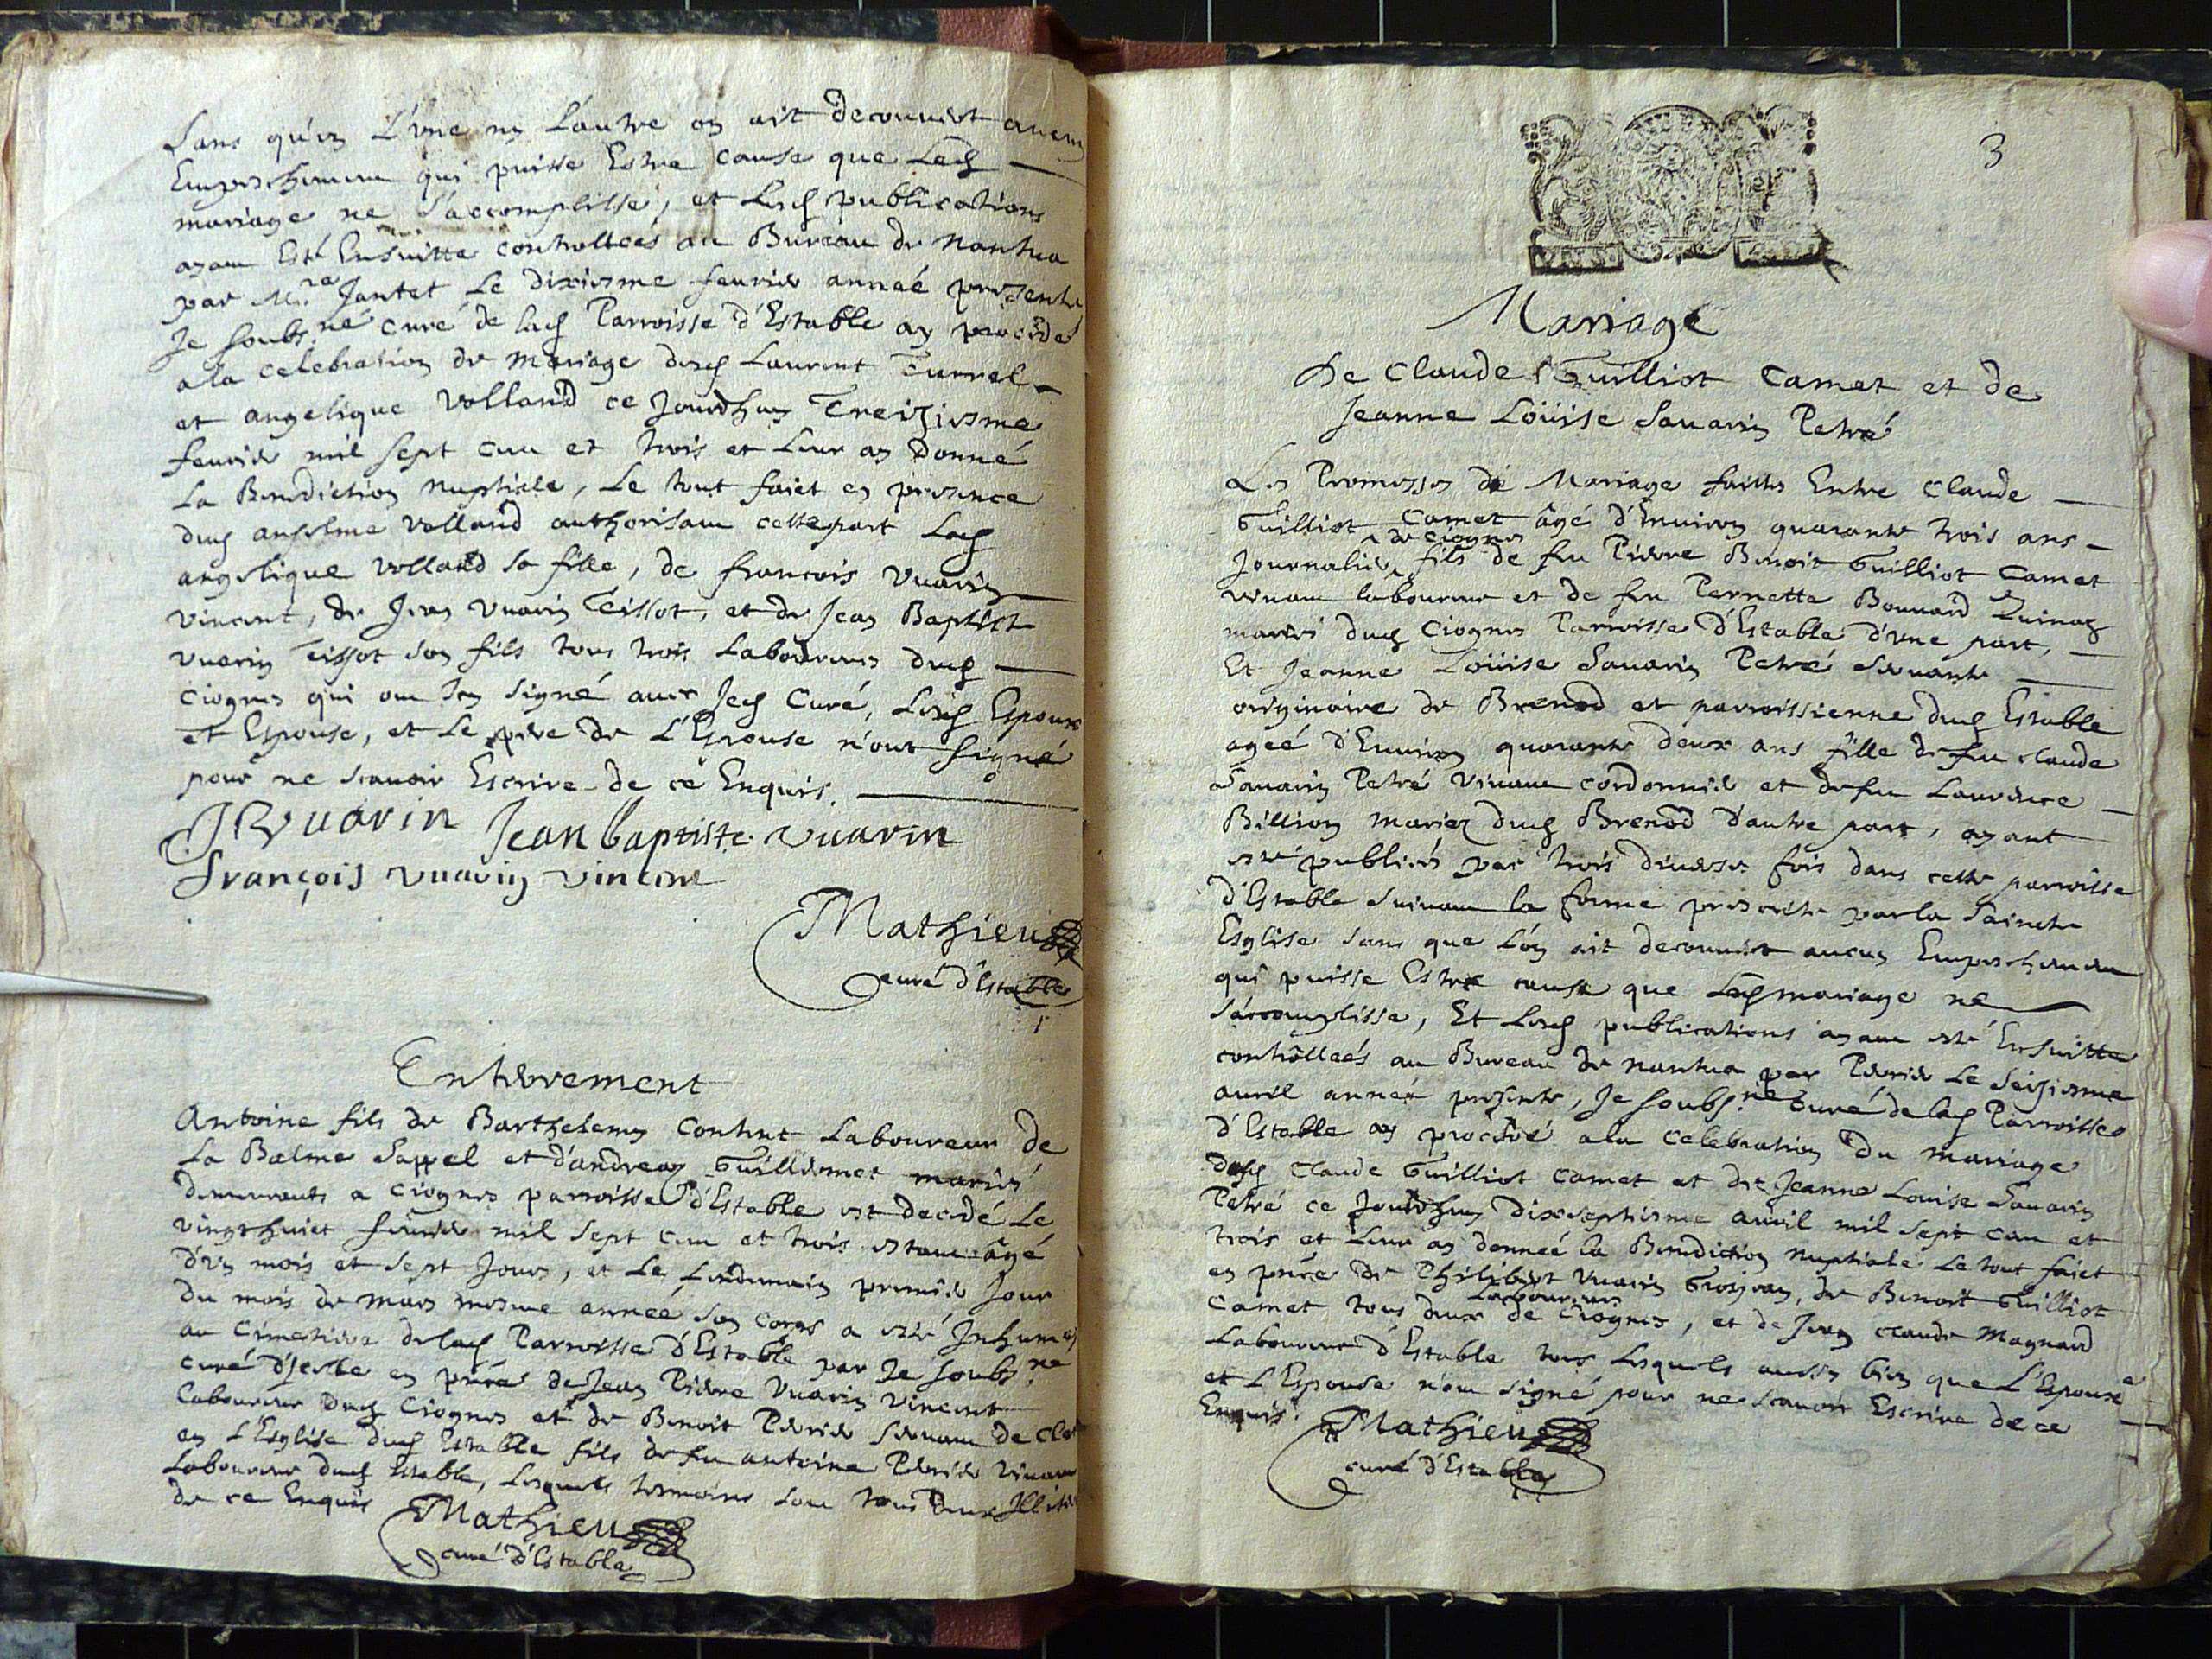 Sans qu'en L'une ny Lautre on ait decouvert aucun
Empeschement qui puisse Estre cause que Led
mariage ne s'accomplisse, et Lesd publications
ayant Esté Ensuitte controlleés au Bureau de Nantua
par Mre Jantet Le dixiesme feurier anneé presente
Je soubs.né curé de lad Parroisse d'Estable ay procédé
a la celebration de Mariage desd Laurent Turrel
et angelique Volland ce Jourdhuy Treiziesme
feurier mil sept cen et trois et Leur ay donné
La Benediction Nuptiale, Le tout faict en presence
dud anselme Volland authorisant cette part Lad
angelique Volland sa fille, de francois Vuarin
vincent, de Jean Vuarin Tissot, et de Jean Baptiste
Vuarin Tissot son fils tous trois Laboureurs dud
Ciognes qui ont signé auec Led Curé, Lesd Espoux
et Espouse, et Le pere de L'Espouse n'ont signé
pour ne scauoir Escrire de ce Enquis.
J Vuarin Jean baptiste vuarin
françois vuarin vincent
Mathieu
curé d'Estable
Enterrement
Antoine fils de Barthelemy Content Laboureur de
La Balme Sappel et d'andreaz Guillermet mariés
demeurants a Ciognes parroisse d'Estable est decedé Le
vingt huict feurier mil sept cen et trois estant âgé
d'un mois et sept Jours, et Le Lendemain premier Jour
du mois de mars mesme année son corps a esté Inhumé
au Cimetiere de lad Parroisse d'Estable par Je soubs.né
curé d'Jcelle en pñce de Jean Pierre Vuarin Vincent
Laboureur dud Ciognes et de Benoit Perrier seruant de Clerc
en l'Esglise dud Estable fils de feu antoine Perrier viuant
Laboureur dud Estable, Lesquels tesmoins sont tous deux Illiterés
de ce Enquis
Mathieu
curé d'Estable
3
Mariage
De Claude Guilliot Camet et de
Jeanne Loüise Sauarin Petré
Les Promesses de Mariage faictes Entre Claude
Guilliot Camet âgé d'Enuiron quarante trois ans
de Ciognes
Journalier fils de feu Pierre Benoit Guilliot Camet
viuant laboureur et de feu Pernette Bouuard
mariés dud Ciognes Parroisse d'Estable d'une part,
Et Jeanne Loüise Sauarin Petré seruante
originaire de Brenod et parroissienne dud Estable
ageé d'Enuiron quarante deux ans fille de feu claude
Sauarin Petré Viuant cordonnier et de feu Laurence
Billion mariez dud Brenod d'autre part, ayant
esté publiés par trois diuerses fois dans cette parroisse
d'Estable suiuant la forme prescrite par la Saincte
Esglise sans que L'on ait decouuert aucun Empeschement
qui puisse Estre cause que Led mariage ne
s'accomplisse, Et Lesd publications ayant esté Ensuitte
contrôlleés au Bureau de Nantua par Perrier Le seiziesme
auril anneé presente, Je soubs.né Curé de lad Parroisse
d'Estable ay procedé a la celebration du mariage
desd Claude Guilliot Camet et de Jeanne Louise Sauarin
Petré ce Jourdhuy Dixseptiesme auril mil sept cen et
trois et Leur ay donneé la Benediction Nuptiale Le tout faict
en pñce de Philibert Vuarin Grosjean, de Benoit Guilliot
Laboureurs
Camet tous deux de Ciognes, et de Jean Claude Magnard
Laboureur d'Estable tous Lesquels aussy bien que L'Espoux
et L'Espouse n'ont signé pour ne scauoir Escrire de ce
Enquis.
Mathieu
curé d'Estable